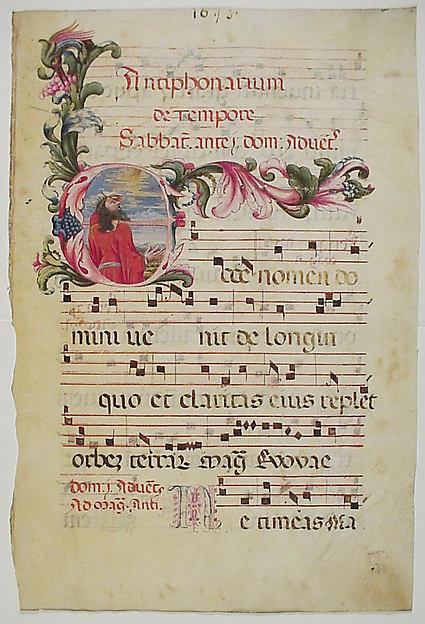 Antiphonarium
de tempore
Sabbat. ante j dom: aduēt.
Ecce nomen do
mini ue nit de longin
quo et claritas eius replet
orbez terrar Mag Evovae
dom: j. aduēt.
Ad mag. Anti.
Ne timeas Ma